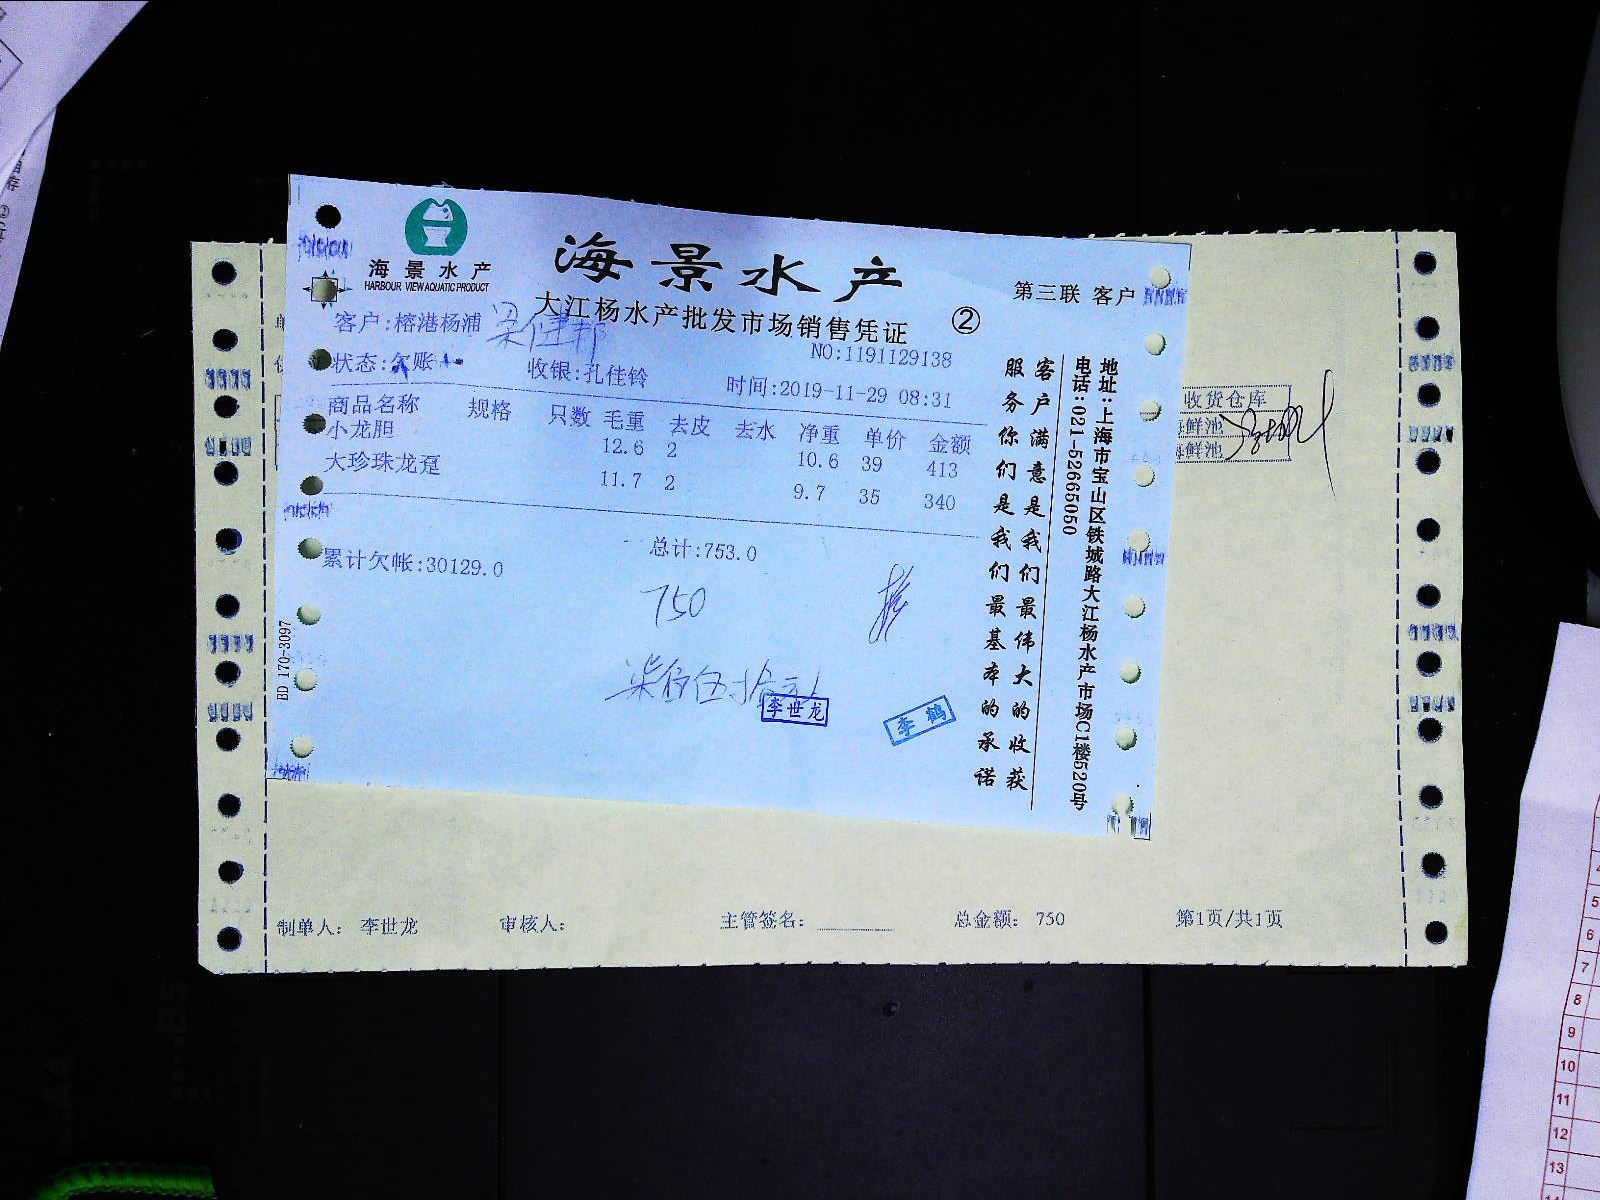 海景水产
HARBOUR VIEW AQUATIC PRODUCT
海景水产
大江杨水产批发市场销售凭证
②
第三联 客户
客户:榕港杨浦
NO:1191129138
状态:欠账
收银:孔佳铃
时间:2019-11-29 08:31
商品名称 规格 只数 毛重 去皮 去水 净重 单价 金额
小龙胆 12.6 2 10.6 39 413
大珍珠龙趸 11.7 2 9.7 35 340
累计欠帐:30129.0
总计:753.0
750
柒佰伍拾元
李世龙
李鹤
BD 170-3097
客户满意是我们最伟大的收获
服务你们是我们最基本的承诺
地址:上海市宝山区铁城路大江杨水产市场C1楼520号
电话:021-52665050
收货仓库
海鲜池
海鲜池
制单人: 李世龙
审核人:
主管签名:
总金额: 750
第1页/共1页
5
6
7
8
9
10
11
12
13